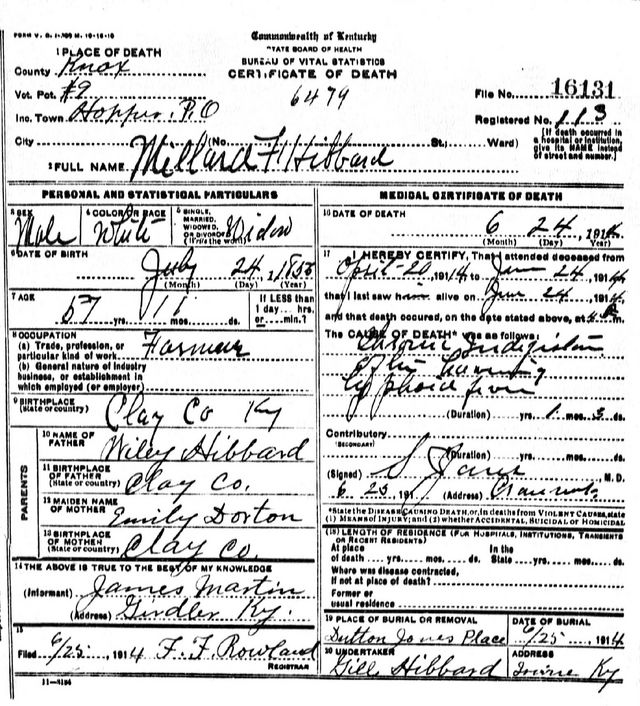 FORM V. S. 1-
Commonwealth of Kentucky
STATE BOARD OF HEALTH
BUREAU OF VITAL STATISTICS
CERTIFICATE OF DEATH
1 PLACE OF DEATH
County Knox
Vot. Pct. #9
Inc. Town Hopper P.O
City (No. St.; Ward)
6479
File No. 16131
Registered No. 113
[If death occurred in a hospital or institution, give its NAME instead of street and number.]
2 FULL NAME Millard F. Hibbard
PERSONAL AND STATISTICAL PARTICULARS
3 SEX Male
4 COLOR OR RACE White
5 SINGLE, MARRIED, WIDOWED, OR DIVORCED (Write the word) Widow
6 DATE OF BIRTH July 24, 185
(Month) (Day) (Year)
7 AGE 57 yrs. 11 mos. ds.
If LESS than 1 day... hrs. or ... min.?
8 OCCUPATION
(a) Trade, profession, or particular kind of work Farmer
(b) General nature of industry business, or establishment in which employed (or employer)
9 BIRTHPLACE (State or country) Clay Co Ky
PARENTS
10 NAME OF FATHER Wiley Hibbard
11 BIRTHPLACE OF FATHER (State or country) Clay Co.
12 MAIDEN NAME OF MOTHER Emily Dorton
13 BIRTHPLACE OF MOTHER (State or country) Clay Co.
14 THE ABOVE IS TRUE TO THE BEST OF MY KNOWLEDGE
(Informant) James Martin
(Address) Girdler Ky.
15
Filed 6/25, 1914 F. F. Rowland
REGISTRAR
11-3184
MEDICAL CERTIFICATE OF DEATH
16 DATE OF DEATH 6 24, 1914
(Month) (Day) (Year)
17 I HEREBY CERTIFY, That I attended deceased from
April 20, 1914, to Jun 24, 1914,
that I last saw him alive on Jun 24, 1914,
and that death occured, on the date stated above, at m.
The CAUSE OF DEATH* was as follows:
Chronic Indigestion
typhoid fever
(Duration) yrs. 1 mos. 3 ds.
Contributory
(SECONDARY)
(Duration) yrs. mos. ds.
(Signed) S , M.D.
6 25, 191 (Address)
*State the DISEASE CAUSING DEATH, or, in deaths from VIOLENT CAUSES, state (1) MEANS OF INJURY; and (2) whether ACCIDENTAL, SUICIDAL or HOMICIDAL
(18) LENGTH OF RESIDENCE (FOR HOSPITALS, INSTITUTIONS, TRANSIENTS OR RECENT RESIDENTS)
At place of death yrs. mos. ds. In the State yrs. mos. ds.
Where was disease contracted, if not at place of death?
Former or usual residence
19 PLACE OF BURIAL OR REMOVAL Dutton Jones Place
DATE OF BURIAL 6/25, 1914
20 UNDERTAKER Gill Hibbard
ADDRESS Ky